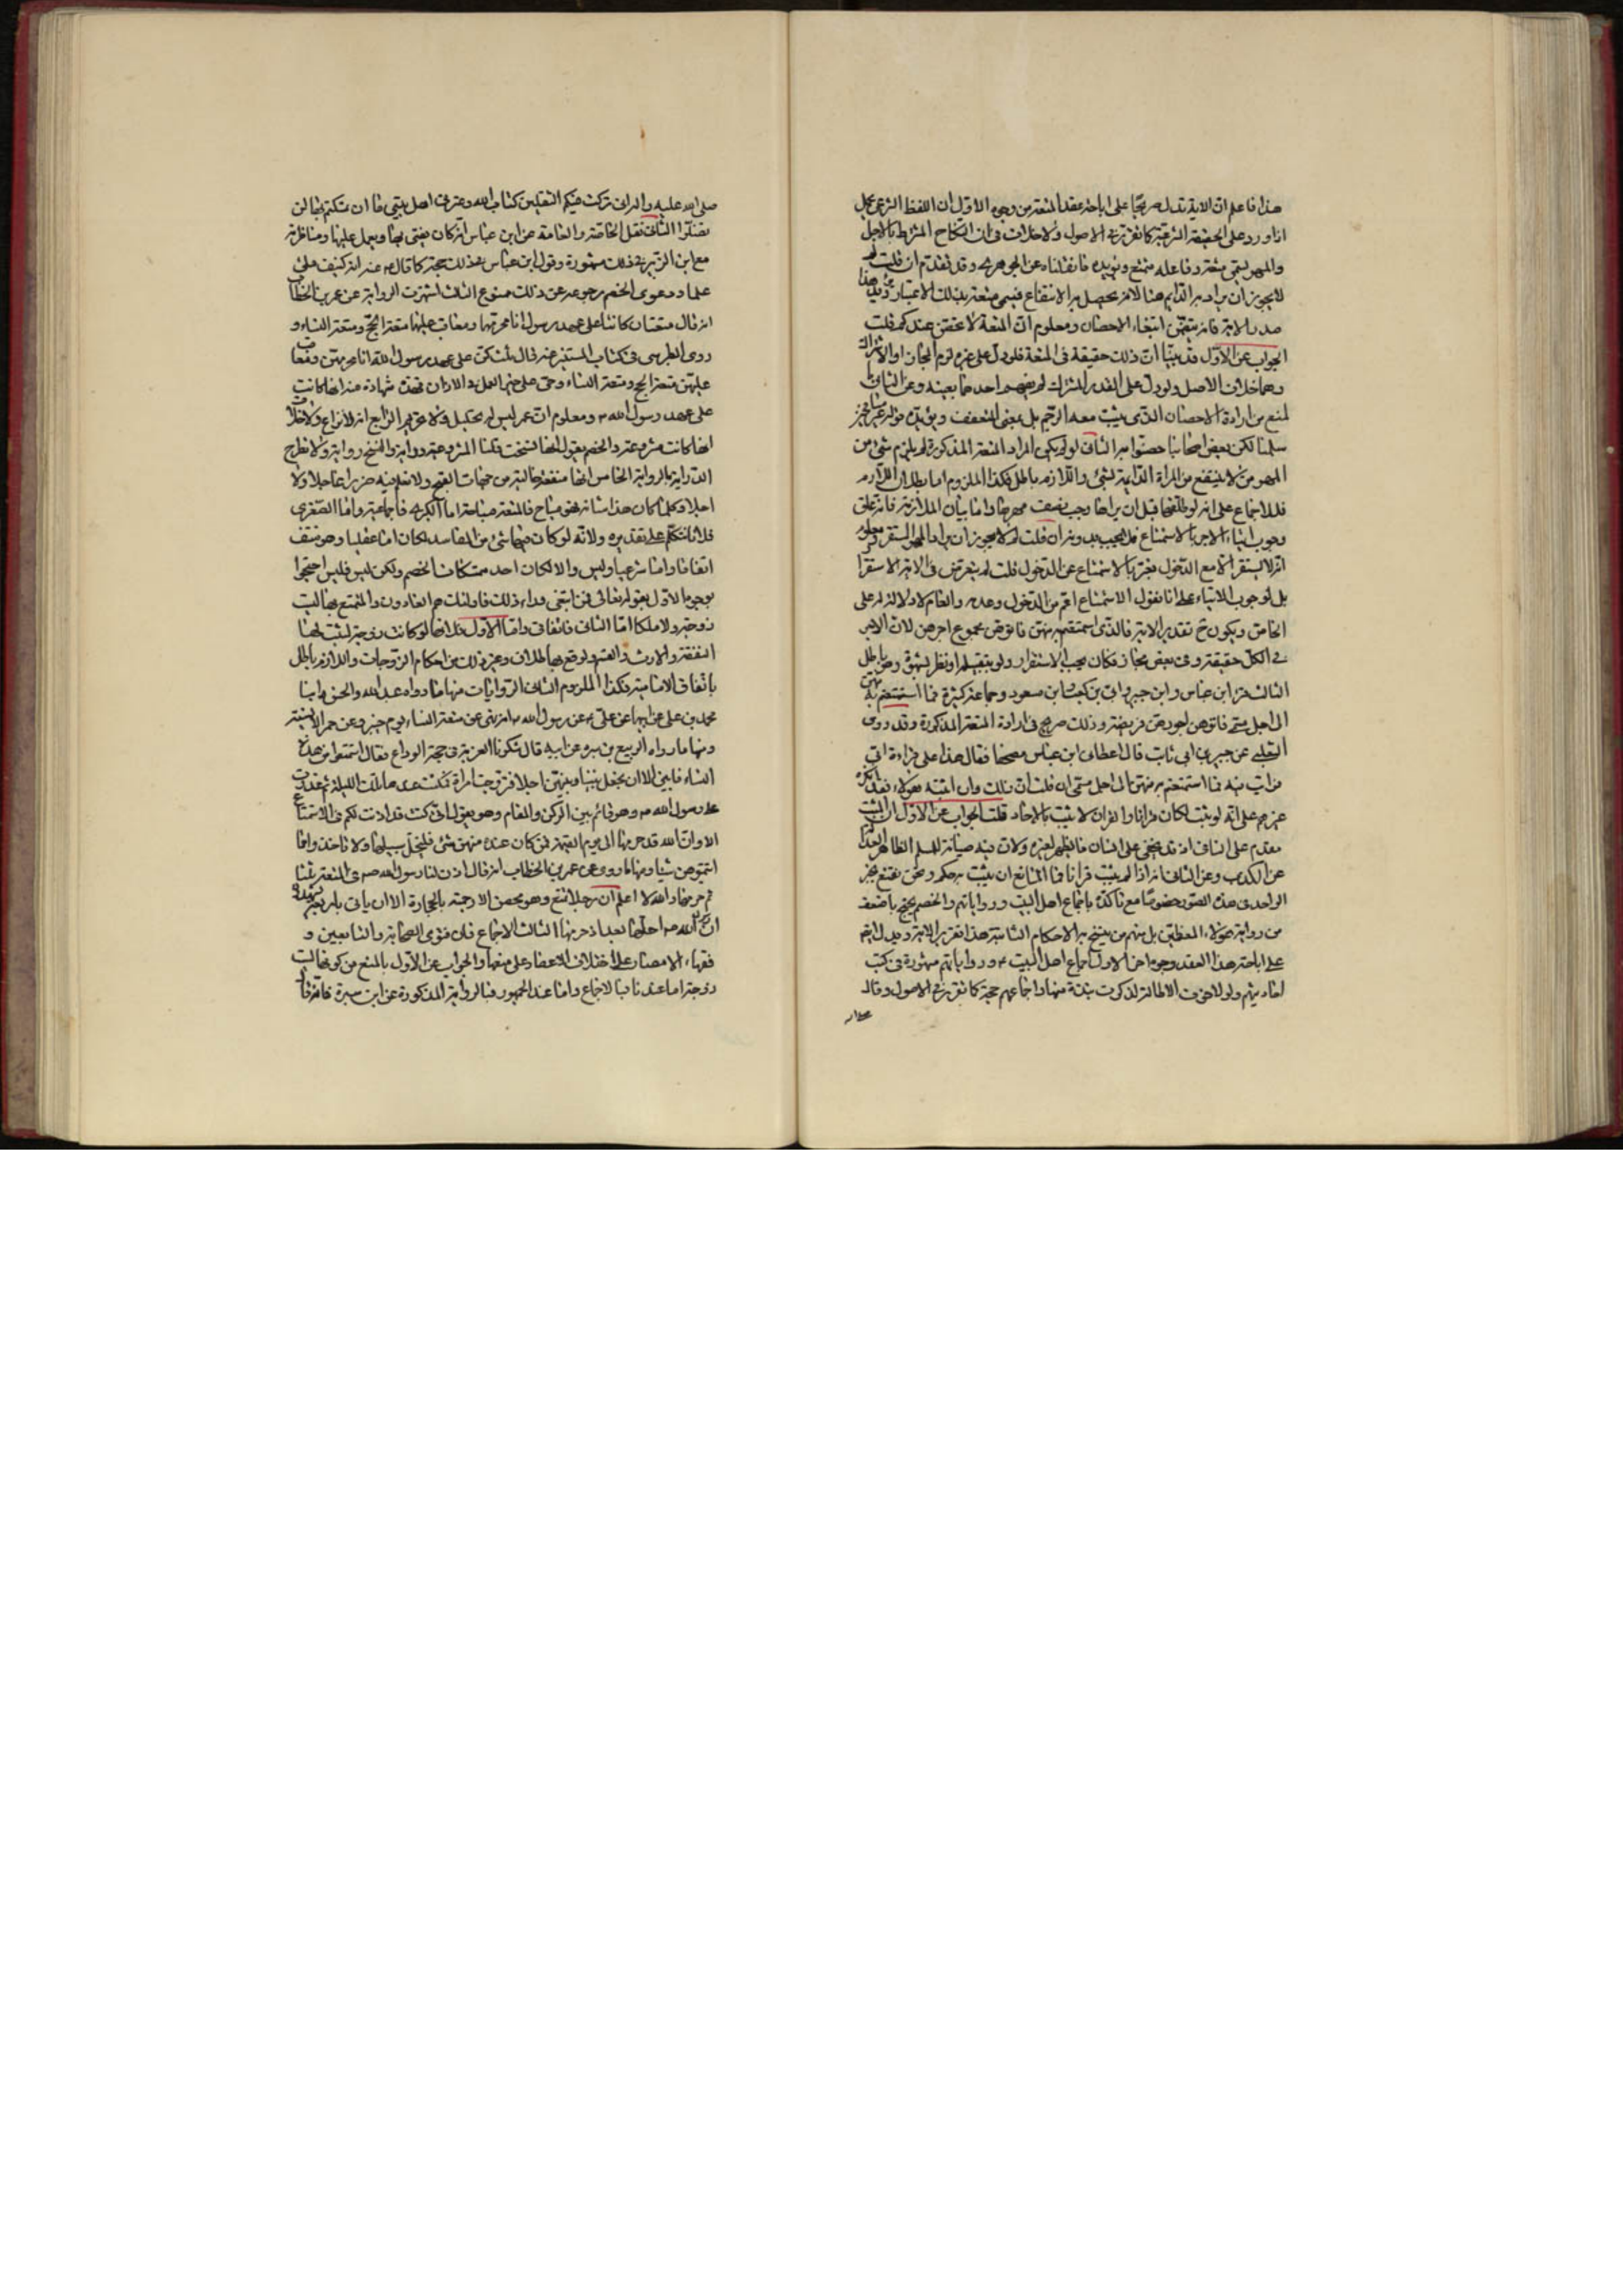 هذا فاعلم ان الاية تدل صريحا على اباحة عقد المتعة من وجوه الاول ان اللفظ الشرعي يحمل
اذا ورد على الحقيقة الشرعية كما تقرر في الاصول ولا خلاف في ان النكاح المشترط بالاجل
والمهر يسمى متعة وفاعله متمتع ويؤيده ما نقلناه عن الجوهري وقد تقدم ان قلت لم
لا يجوز ان يراد به الدايم هنا لانه يحصل به الانتفاع فيسمى متعة بذلك الاعتبار ويؤيد هذا
صدر الاية فانه يتضمن ابتغاء الاحصان ومعلوم ان المتعة لا تحصن عندكم قلت
الجواب عن الاول قد بينا ان ذلك حقيقة في المتعة فلو دل على غيره لزم المجاز او الاشتراك
وهما خلاف الاصل ولو دل على القدر المشترك لم يفهم احدهما بعينه وعن الثاني
لمنع من ارادة الاحصان الذي يثبت معه الرجم بل بمعنى التعفف ويؤيده قوله غير مسافحين
سلمنا لكن بعض اصحابنا حصنوا بها الثاني لو لم يكن المراد المتعة المذكورة لم يلزم شيء من
المهر من لا ينتفع من المراة الدايمة بشيء واللازم باطل فكذا الملزوم اما بطلان اللازم
فللاجماع على انه لو طلقها قبل ان يراها وجب نصف مهرها واما بيان الملازمة فانه علق
وجوب ايتاء الاجر بالاستمتاع فلا يجب بدونه ان قلت لم لا يجوز ان يراد المهر المستقر ومعلوم
انه لا يستقر الا مع الدخول فعبر بالاستمتاع عن الدخول قلت لم يتعرض في الاية الاستقرار
بل لوجوب الايتاء على انا نقول الاستمتاع اعم من الدخول وعدمه والعام لا دلالة له على
الخاص ويكون ح تقدير الاية فالذي استمتعتم به منهن فاتوهن مجموع اجرهن لان الاجر
في الكل حقيقة وفي بعض مجاز فكان يجب الاستقرار ولو بتقبيله او نظر بشهوة وهو باطل
الثالث قرا ابن عباس وابن جبير وابي بن كعب وابن مسعود وجماعة كثيرة فما استمتعتم به منهن
الى اجل مسمى فاتوهن اجورهن فريضة وذلك صريح في ارادة المتعة المذكورة وقد روى
الثعلبي عن جبير بن ابي ثابت قال اعطاني ابن عباس مصحفا فقال هذا على قراءة ابي
فرايت فيه فما استمتعتم به منهن الى اجل مسمى ان قلت ان ذلك وان اثبته هؤلاء فقد انكره
غيرهم على انه لو ثبت لكان قرانا والقران لا يثبت بالاحاد قلت الجواب عن الاول ان المثبت
مقدم على النافي اذ قد يخفى على انسان ما يظهر لغيره ولان فيه صيانة المسلم الظاهر العدالة
عن الكذب وعن الثاني انه اذا لم يثبت قرانا فما المانع ان يثبت به حكم ونحن نقنع بخبر
الواحد في هذه الصور خصوصا مع تاكده باجماع اهل البيت ورواياتهم والخصم يحتج باضعف
من رواية هؤلاء المعظمين بل منهم من ينسخ به الاحكام الثابتة هذا تقرير الاية ويدل ايضا
على اباحة هذا العقد وجوه اخر الاول اجماع اهل البيت ع ورواياتهم مشهورة في كتب
احاديثهم ولولا خوف الاطالة لذكرت نبذة منها واجماعهم حجة كما تقرر في الاصول وقال
صلى الله
صلى الله عليه واله اني تركت فيكم الثقلين كتاب الله وعترتي اهل بيتي ما ان تمسكتم بهما لن
تضلوا الثاني نقل الخاصة والعامة عن ابن عباس انه كان يفتي بها ويعمل عليها ومناظرته
مع ابن الزبير في ذلك مشهورة وقول ابن عباس في ذلك حجة كما قال ص عنه انه كنيف ملئ
علما ودعوى الخصم رجوعه عن ذلك ممنوع الثالث اشتهرت الرواية عن عمر بن الخطاب
انه قال متعتان كانتا على عهد رسول الله انا محرمهما ومعاقب عليهما متعة الحج ومتعة النساء و
روى الطبرسي في كتاب المستنير عنه قال ثلث كن على عهد رسول الله انا محرمهن ومعاقب
عليهن متعة الحج ومتعة النساء وحي على خير العمل في الاذان فهذه شهادة منه انها كانت
على عهد رسول الله ص ومعلوم ان عمر ليس له تحليل ولا تحريم الرابع انه لا نزاع ولا خلاف
انها كانت مشروعة والخصم يقول انها نسخت قلنا المشروعية دراية والنسخ رواية ولا تطرح
الدراية بالرواية الخامس انها منفعة خالية من جهات القبح ولا نعلم فيه ضررا عاجلا ولا
اجلا وكلما كان هذا شانه فهو مباح فالمتعة مباحة اما الكبرى فاجماعية واما الصغرى
فلانا نتكلم على تقديره ولانه لو كان فيها شيء من المفاسد لكان اما عقليا وهو منتف
اتفاقا واما شرعيا وليس والا لكان احد متمسكات الخصم ولكن ليس فليس احتجوا
بوجوه الاول بقوله تعالى فمن ابتغى وراء ذلك فاولئك هم العادون والمتمتع بها ليست
زوجة ولا ملكا اما الثاني فاتفاقي واما الاول فلانها لو كانت زوجة لثبت لها
النفقة والارث والقسم ولوقع بها طلاق وغير ذلك من احكام الزوجات واللازم باطل
باتفاق الامامية فكذا الملزوم الثاني الروايات منها ما رواه عبد الله والحسن ابنا
محمد بن علي عن ابيهما عن علي ع عن رسول الله ص انه نهى عن متعة النساء يوم خيبر وعن حمر الانسية
ومنها ما رواه الربيع بن سبرة عن ابيه قال شكونا العزبة في حجة الوداع فقال استمتعوا من هذه
النساء فابين الا ان يجعل بيننا وبينهن اجلا فتزوجت امراة فمكثت عندها تلك الليلة ثم غدوت
على رسول الله ص وهو قائم بين الركن والمقام وهو يقول اني كنت قد اذنت لكم في الاستمتاع
الا وان الله قد حرمها الى يوم القيمة فمن كان عنده منهن شيء فليخل سبيلها ولا تاخذوا مما
اتيتموهن شيئا ومنها ما روي عن عمر بن الخطاب انه قال اذن لنا رسول الله ص في المتعة ثلثا
ثم حرمها والله لا اعلم ان رجلا تمتع وهو محصن الا رجمته بالحجارة الا ان ياتي باربعة يشهدون
ان رسول الله ص احلها بعد اذ حرمها الثالث الاجماع فان فتوى الصحابة والتابعين و
فقهاء الامصار على اختلاف الاعصار على منعها والجواب عن الاول بالمنع من كونها ليست
زوجة اما عندنا فبالاجماع واما عند الجمهور فبالرواية المذكورة عن ابن سبرة